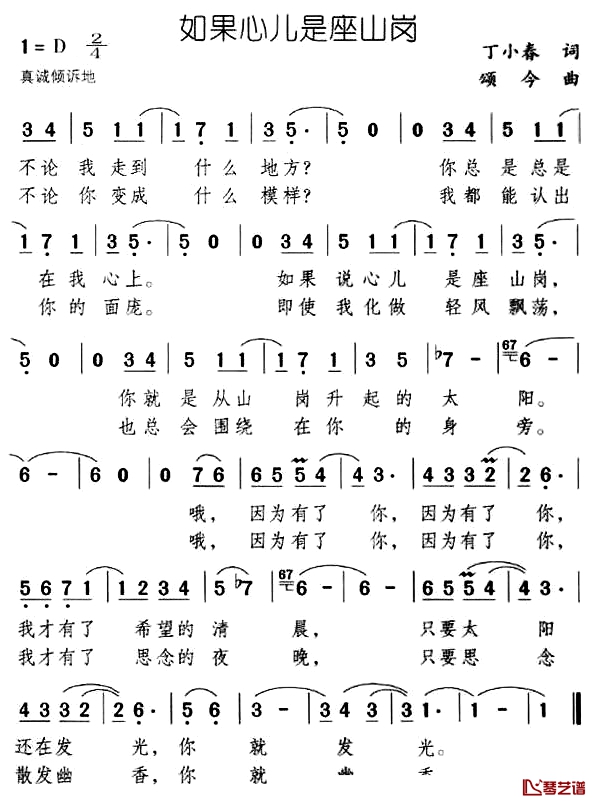 如果心儿是座山岗
1=D 2/4
丁小春 词
真诚倾诉地
颂今 曲
3 4 | 5 1 1 | 1 7 1 | 3 5· | 5 0 | 0 3 4 | 5 1 1 |
不论我走到 什么地方? 你总是总是
不论你变成 什么模样? 我都能认出
1 7 1 | 3 5· | 5 0 | 0 3 4 | 5 1 1 | 1 7 1 | 3 5· |
在我心上。 如果说心儿 是座山岗,
你的面庞。 即使我化做 轻风飘荡,
5 0 | 0 3 4 | 5 1 1 | 1 7 1 | 3 5 | ♭7 - | 67 6 - |
你就是从山 岗升起的太 阳。
也总会围绕在你 的身 旁。
6 - | 6 0 | 0 76 | 65 54 | 43· | 43 32 | 26· |
哦, 因为有了 你, 因为有了 你,
哦, 因为有了 你, 因为有了 你,
56 71 | 12 34 | 5 ♭7 | 67 6 - | 6 - | 65 54 | 43· |
我才有了 希望的清 晨, 只要太 阳
我才有了 思念的夜 晚, 只要思 念
43 32 | 26· | 56· | 3 - | 33 43 | 1· | 1 - | 1 ‖
还在发 光, 你 就 发 光。
散发幽 香, 你 就 幽 香
琴艺谱